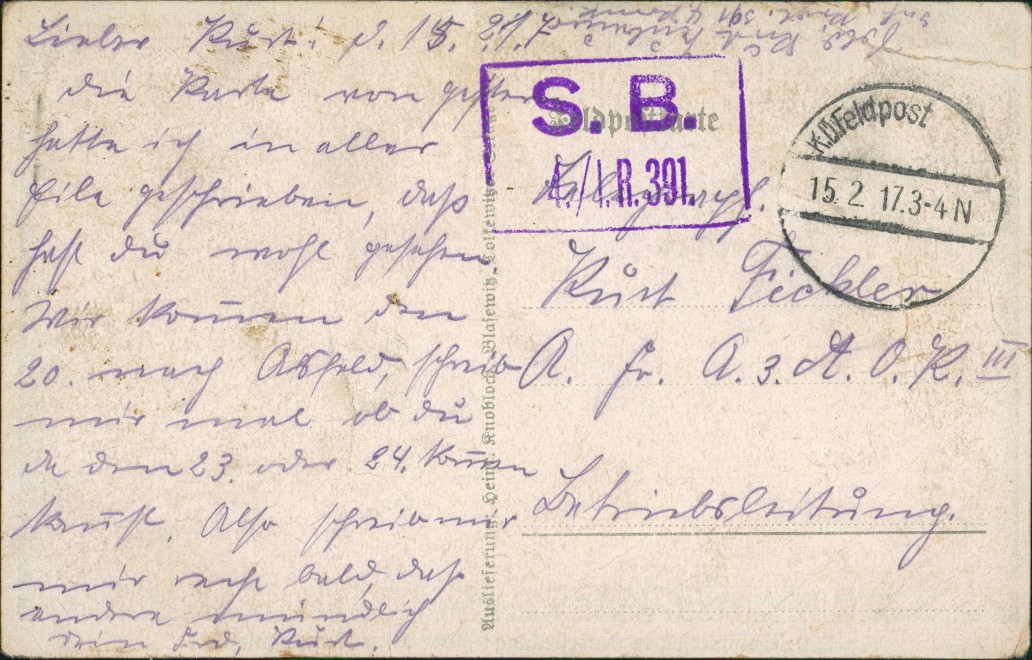 Lieber Kurt! d. 15. 2. 17
die Karte von gestern
hatte ich in aller
Eile geschrieben, daß
hast du wohl gesehen
Wir kommen den
20. nach Asfeld, schreib
mir mal ob du
da den 23. oder 24. kommen
kannst. Also schreib mir
mir recht bald, daß
andere mündlich
dein Frd, Kurt.
Feldpostkarte
S. B.
4./I.R. 391.
K.D. Feldpost
15. 2. 17. 3-4 N
Telegraph.
Kurt Fickler
A. Fr. A. 3. A. O. K. III
Betriebsleitung.
Auslieferung: Heinr. Knobloch, Blasewitz-Tolkewitz